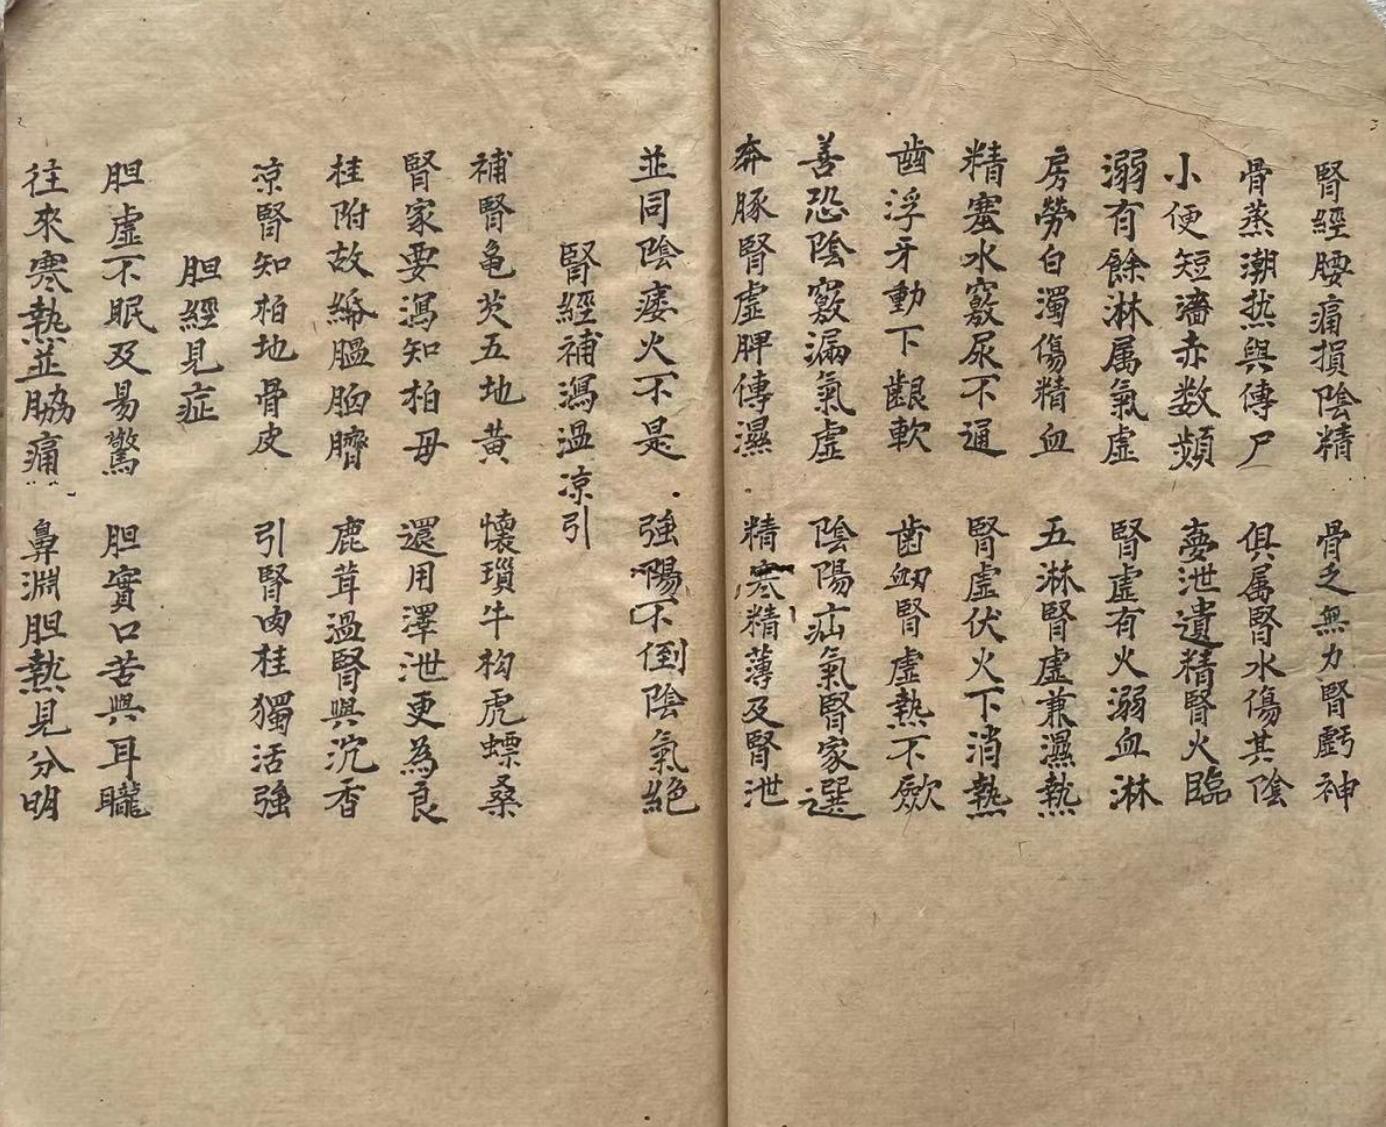 腎經腰痛損陰精　骨乏無力腎虧神
骨蒸潮热與傳尸　俱属腎水傷其陰
小便短濇赤数頻　夢泄遺精腎火臨
溺有餘淋属氣虛　腎虛有火溺血淋
房勞白濁傷精血　五淋腎虛兼濕熱
精塞水竅尿不通　腎虛伏火下消熱
齒浮牙動下齦軟　齒衂腎虛熱不歇
善恐陰竅漏氣虛　陰陽疝氣腎家選
奔豚腎虛脾傳濕　精寒精薄及腎泄
並同陰痿火不是　強陽不倒陰氣絕
腎經補瀉溫凉引
補腎龟芡五地黄　懷瑣牛枸虎螵桑
腎家要瀉知柏毋　還用澤泄更為良
桂附故腽肭臍　鹿茸溫腎與沉香
凉腎知柏地骨皮　引腎肉桂獨活強
胆經見症
胆虛不眠及易驚　胆實口苦與耳矓
往來寒熱並脇痛　鼻淵胆熱見分明